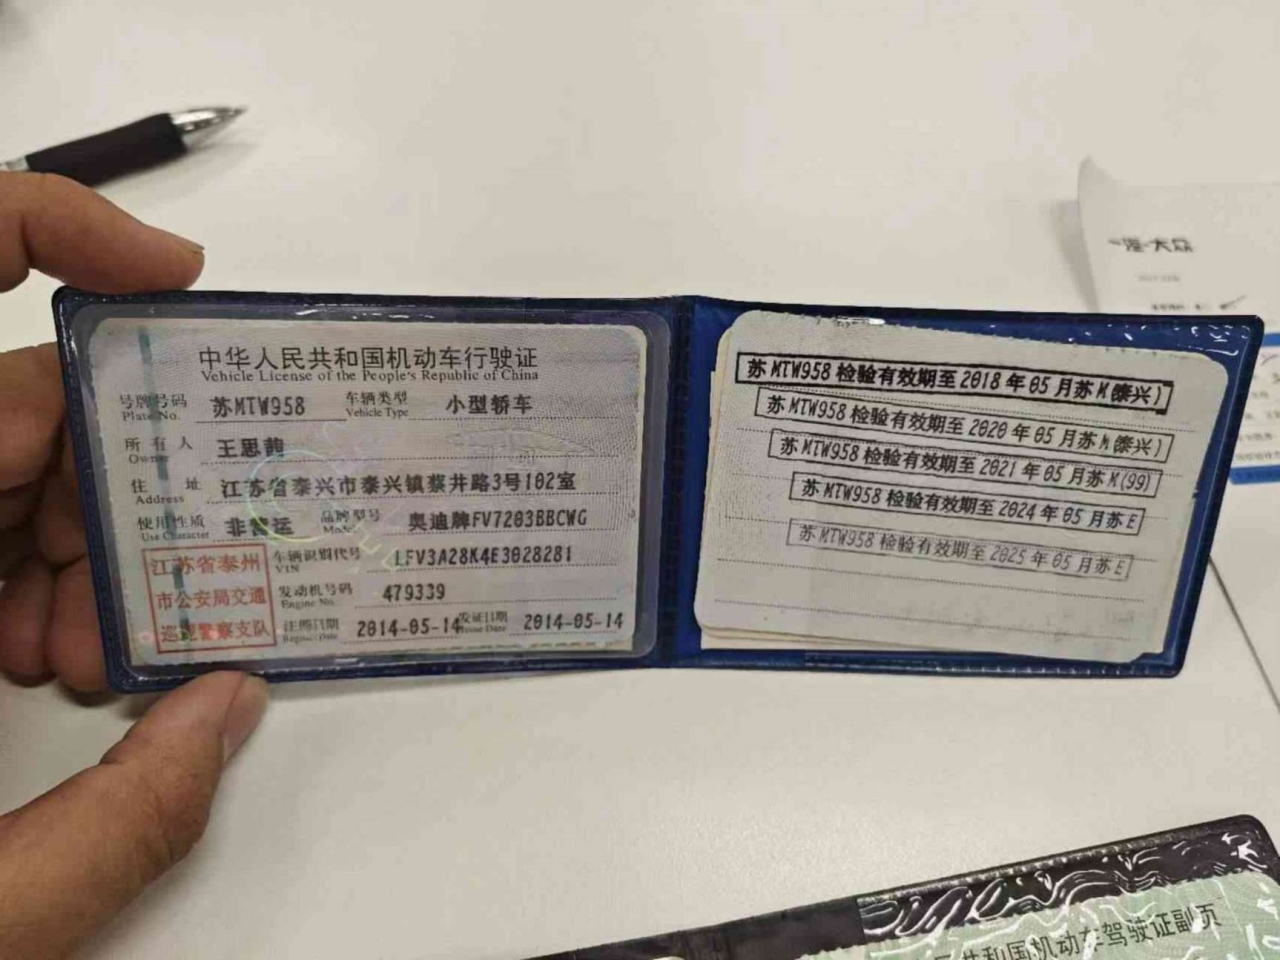 中华人民共和国机动车行驶证
Vehicle License of the People's Republic of China
号牌号码 苏MTW958 车辆类型 小型轿车
Plate No. Vehicle Type
所有人 王思茜
Owner
住址 江苏省泰兴市泰兴镇蔡井路3号102室
Address
使用性质 非营运 品牌型号 奥迪牌FV7203BBCWG
Use Character Model
江苏省泰州
市公安局交通
巡逻警察支队
车辆识别代号 LFV3A28K4E3028281
VIN
发动机号码 479339
Engine No.
注册日期 2014-05-14 发证日期 2014-05-14
Register Date Issue Date
苏MTW958 检验有效期至2018年05月苏M(泰兴)
苏MTW958 检验有效期至2020年05月苏M(泰兴)
苏MTW958 检验有效期至2021年05月苏M(99)
苏MTW958 检验有效期至2024年05月苏E
苏MTW958 检验有效期至2025年05月苏E
大众
共和国机动车驾驶证副页